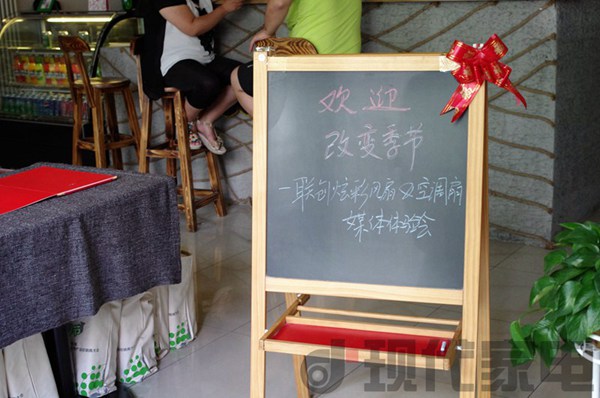 欢迎
改变季节
一联创炫彩风扇及空调扇
媒体体验会
现代家电